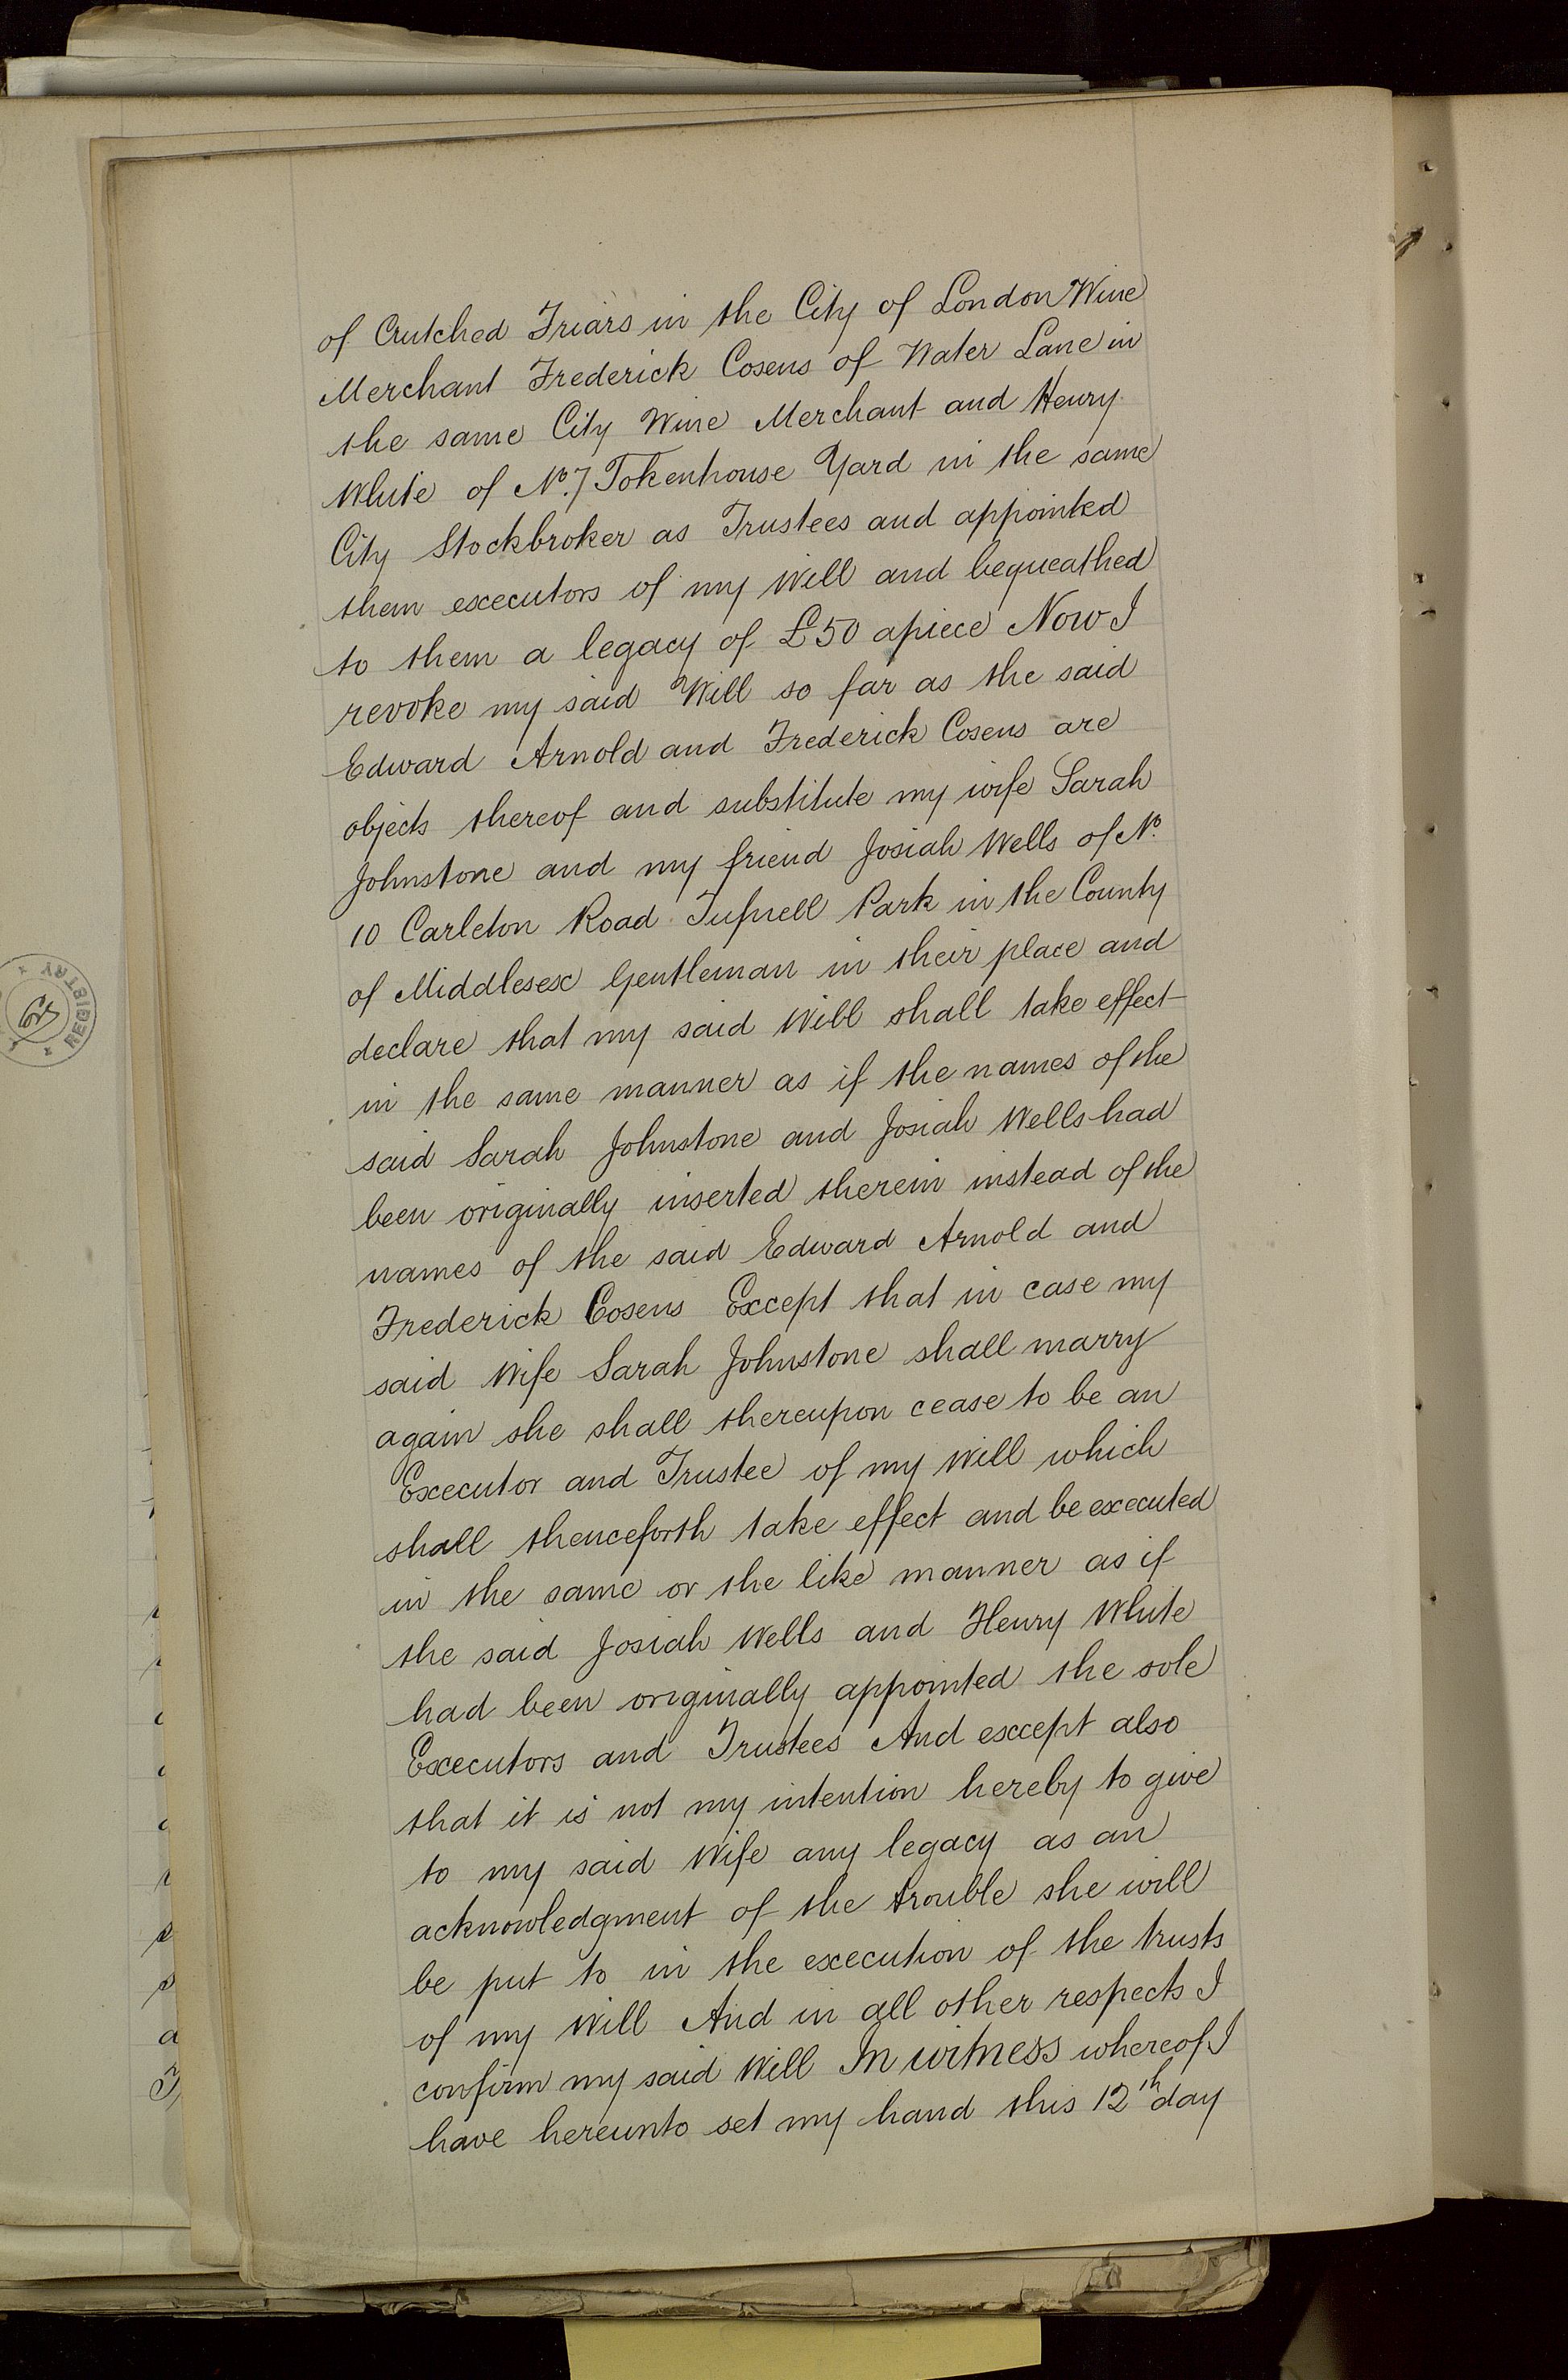 of Crutched Friars in the City of London Wine
Merchant Frederick Cosens of Water Lane in
the same City Wine Merchant and Henry
White of No. 7 Tokenhouse Yard in the same
City Stockbroker as Trustees and appointed
them executors of my Will and bequeathed
to them a legacy of £50 apiece Now I
revoke my said Will so far as the said
Edward Arnold and Frederick Cosens are
objects thereof and substitute my wife Sarah
Johnstone and my friend Josiah Wells of No.
10 Carleton Road Tufnell Park in the County
of Middlesex Gentleman in their place and
declare that my said Will shall take effect
in the same manner as if the names of the
said Sarah Johnstone and Josiah Wells had
been originally inserted therein instead of the
names of the said Edward Arnold and
Frederick Cosens Except that in case my
said Wife Sarah Johnstone shall marry
again she shall thereupon cease to be an
Executor and Trustee of my Will which
shall thenceforth take effect and be executed
in the same or the like manner as if
the said Josiah Wells and Henry White
had been originally appointed the sole
Executors and Trustees And except also
that it is not my intention hereby to give
to my said Wife any legacy as an
acknowledgment of the trouble she will
be put to in the execution of the trusts
of my Will And in all other respects I
confirm my said Will In witness whereof I
have hereunto set my hand this 12th day
REGISTRY